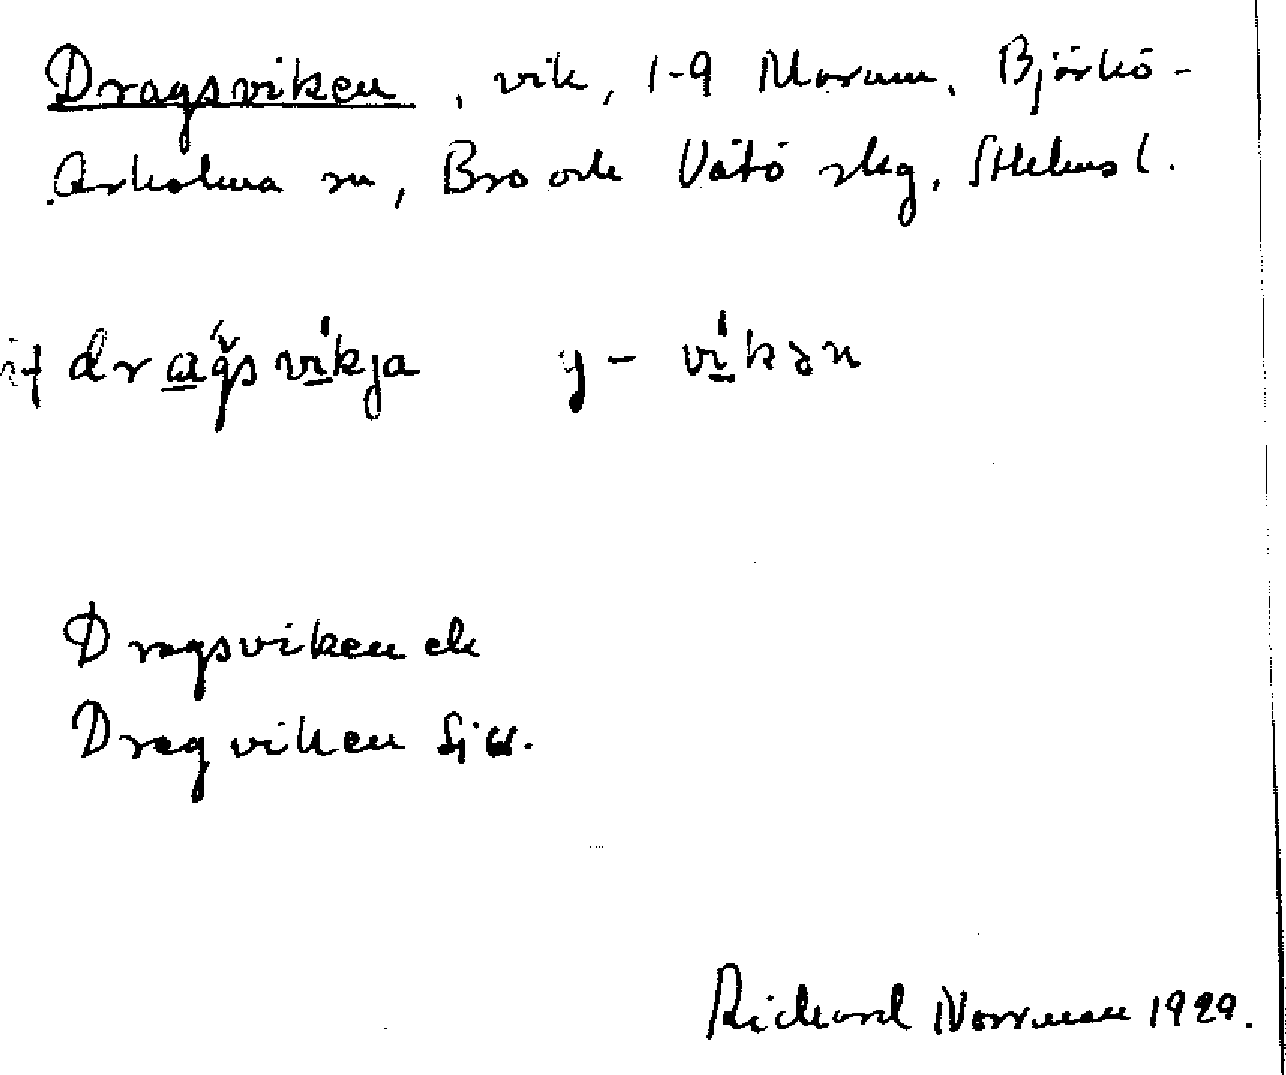 Dragsviken, vik, 1-9 Marum, Björkö-
Arholma sn, Bro och Vätö skg, Sthlms l.
dragsvikja y - vikən
Dragsviken ek
Dragviken
Richard Norrman 1929.